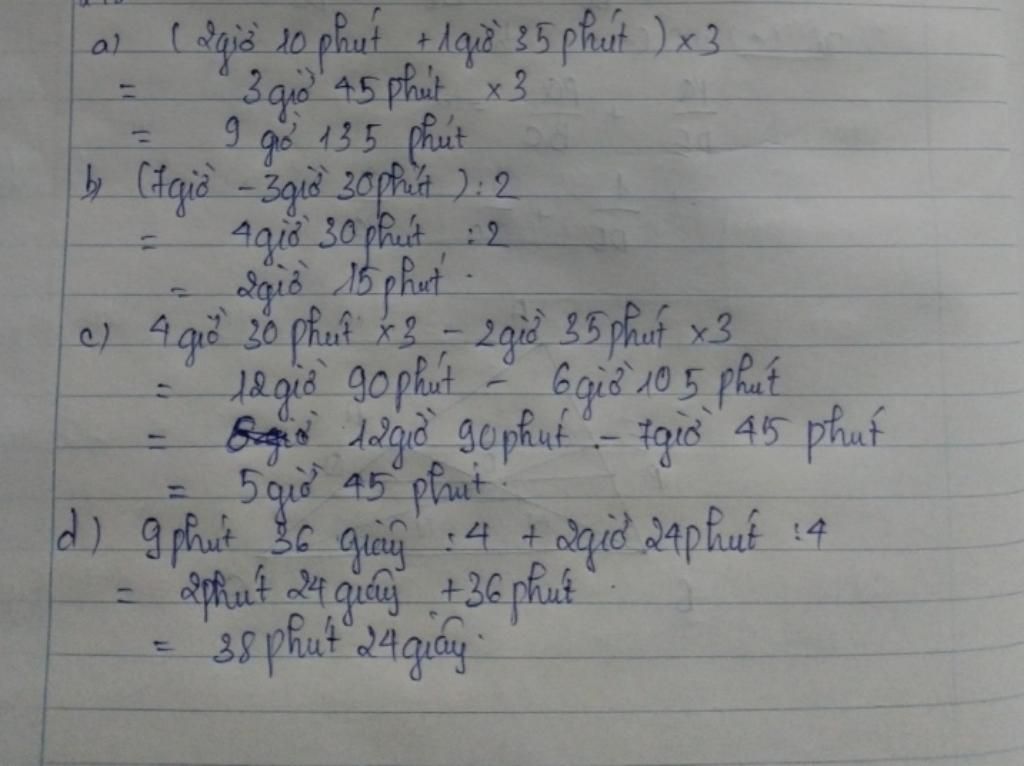 a) (2giờ 10 phút + 1giờ 35 phút) x3
= 3giờ 45 phút x3
= 9 giờ 135 phút
b) (7giờ - 3giờ 30phút) : 2
= 4giờ 30phút : 2
= 2giờ 15 phút.
c) 4 giờ 30 phút x3 - 2giờ 35 phút x3
= 12giờ 90 phút - 6giờ 105 phút
= 12giờ 90 phút - 7giờ 45 phút
= 5giờ 45 phút.
d) 9 phút 36 giây : 4 + 2giờ 24 phút : 4
= 2phút 24 giây + 36 phút
= 38 phút 24 giây.